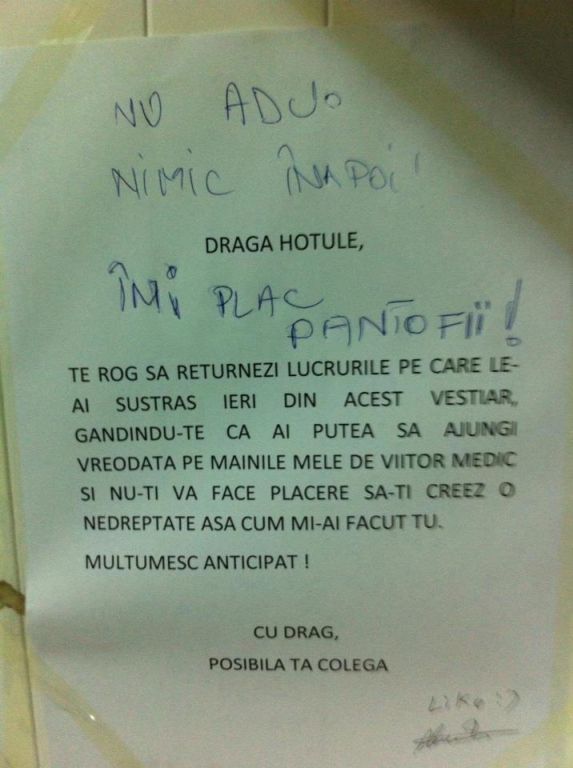 NU ADUc
NIMIC ÎNAPOI!
DRAGA HOTULE,
ÎMI PLAC
PANTOFII!
TE ROG SA RETURNEZI LUCRURILE PE CARE LE-
AI SUSTRAS IERI DIN ACEST VESTIAR,
GANDINDU-TE CA AI PUTEA SA AJUNGI
VREODATA PE MAINILE MELE DE VIITOR MEDIC
SI NU-TI VA FACE PLACERE SA-TI CREEZ O
NEDREPTATE ASA CUM MI-AI FACUT TU.
MULTUMESC ANTICIPAT !
CU DRAG,
POSIBILA TA COLEGA
Like :)